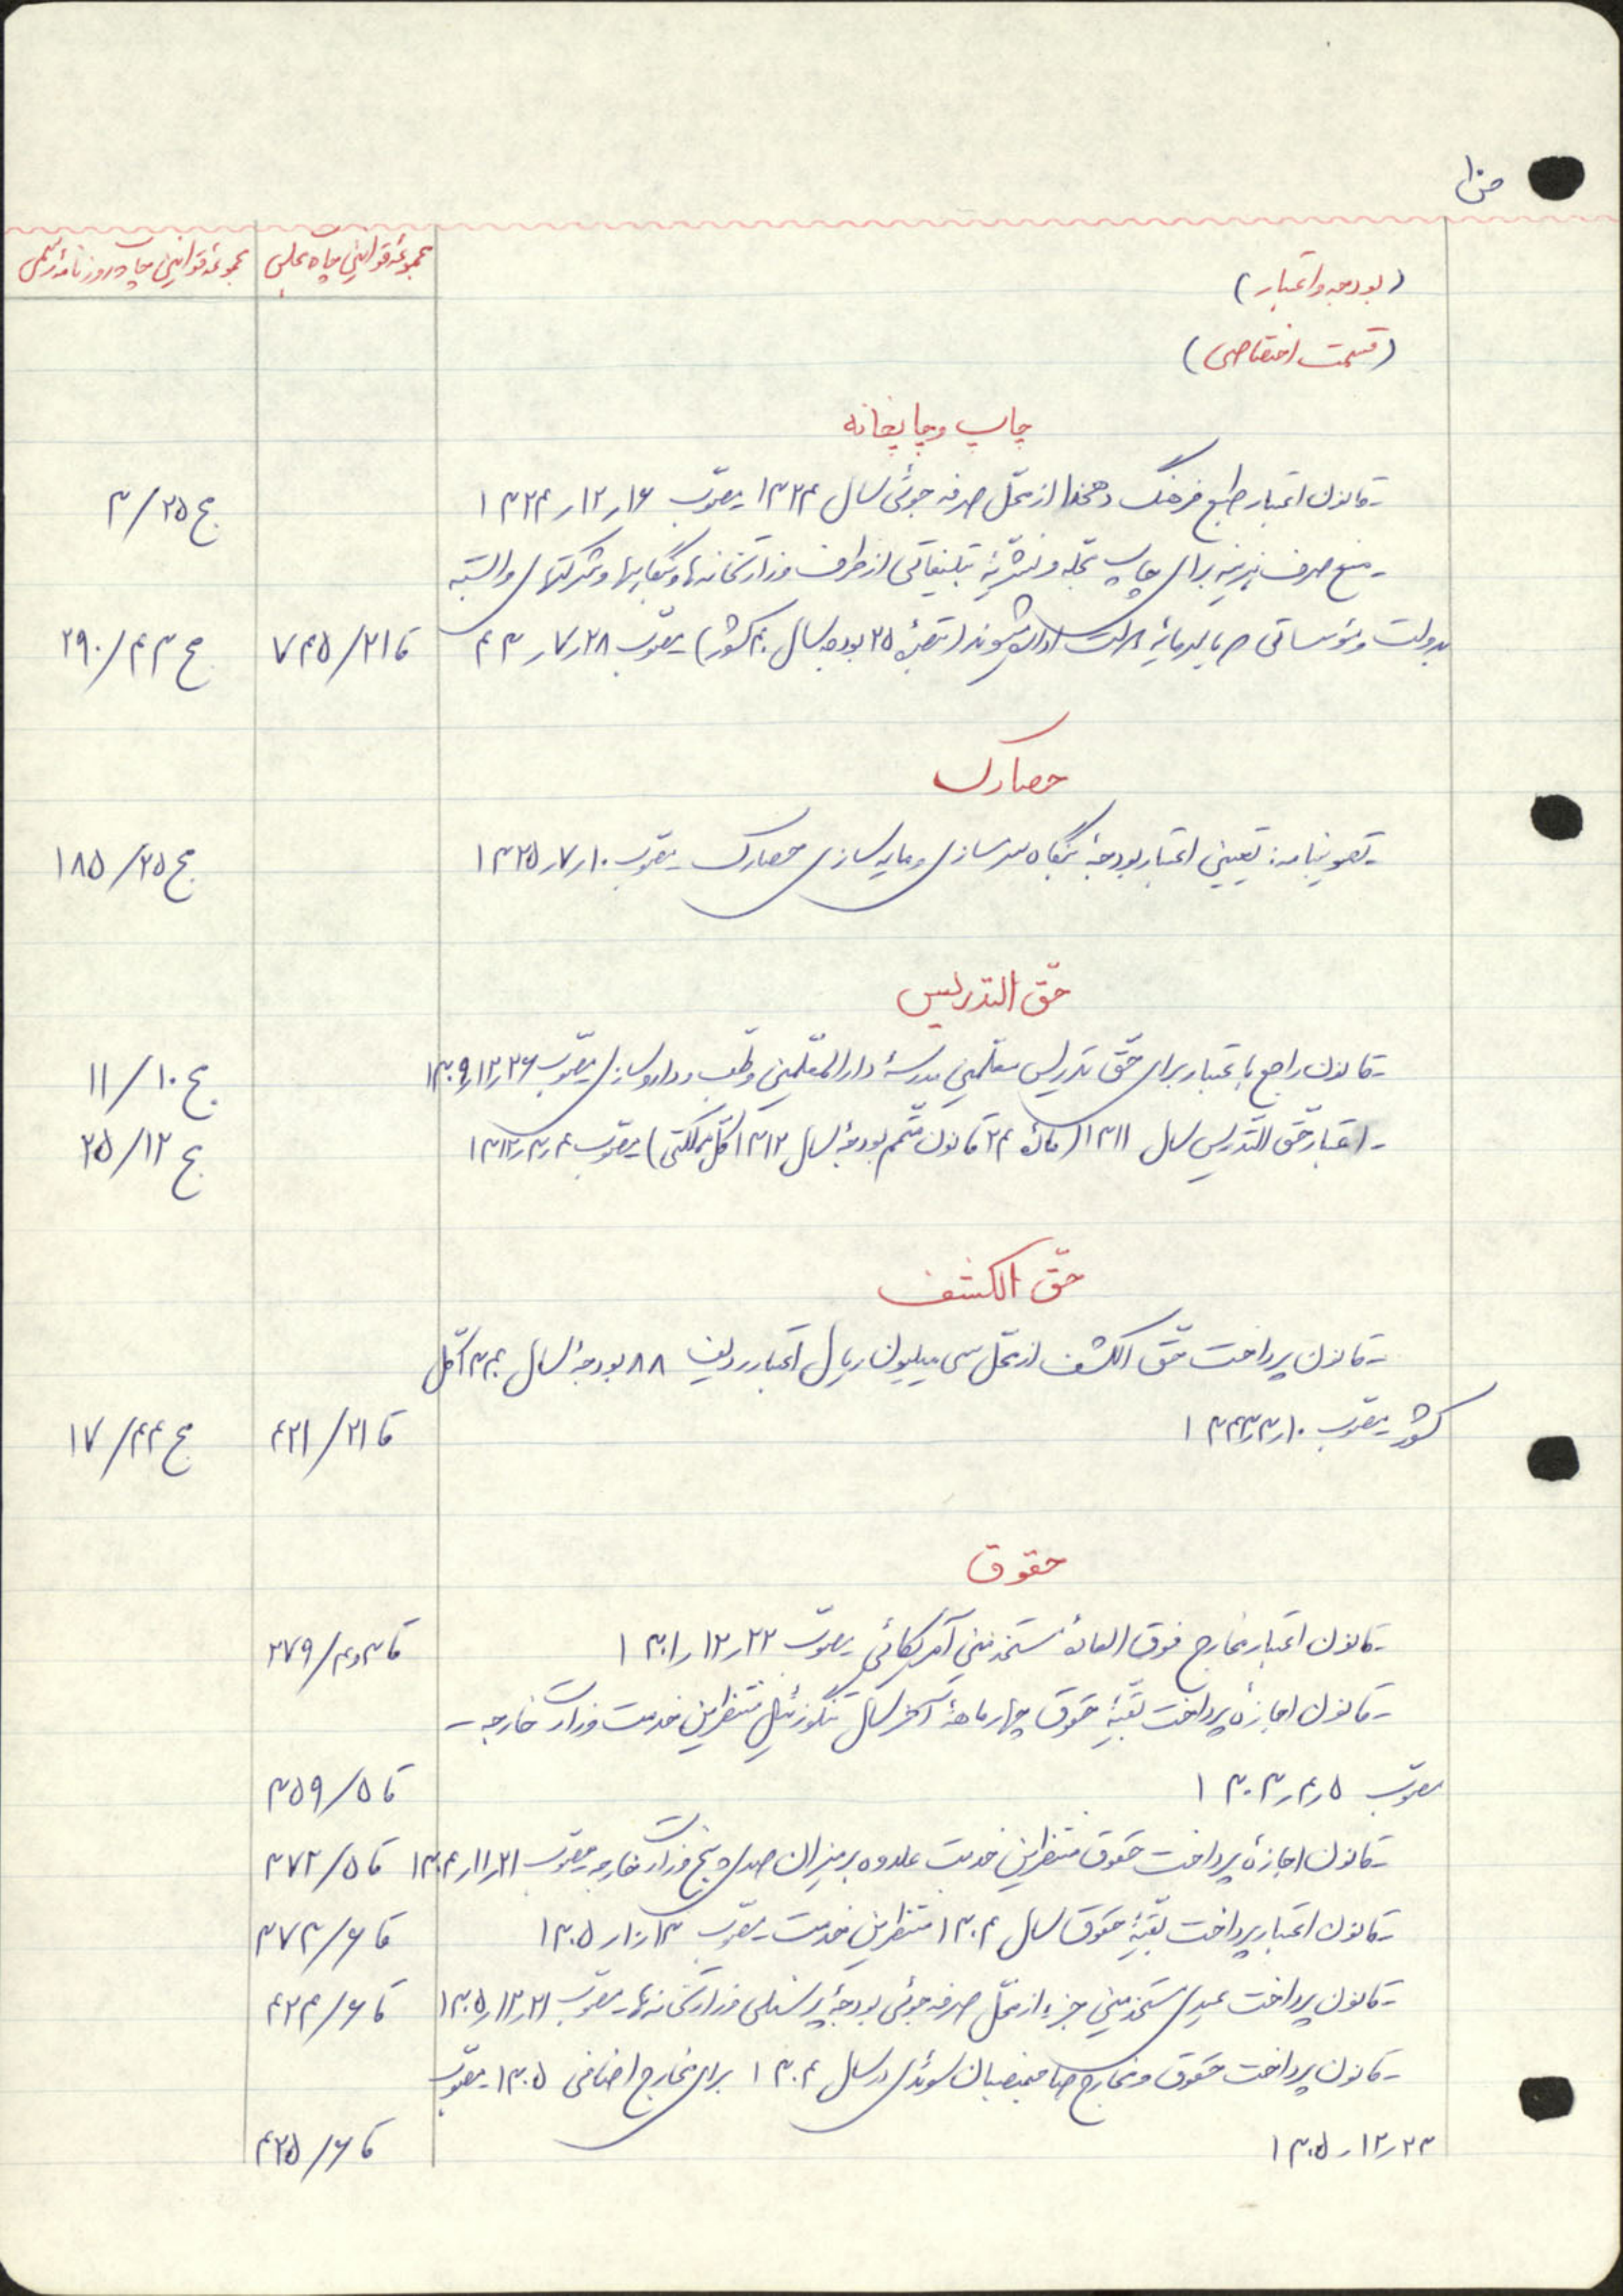 مجموعه قوانین چاپ مجلس
مجموعه قوانین چاپ روزنامه رسمی
(بودجه و اعتبار)
(قسمت اختصاصی)
چاپ و چاپخانه
- قانون اعتبار طبع فرهنگ دهخدا از محلّ صرفه جوئی سال ۱۳۲۴ مصوّب ۱۶ر۱۲ر۱۳۲۴ ج ۲۵/۳
- منع صرف هزینه برای چاپ مجله و نشریهٔ تبلیغاتی از طرف وزارتخانه‌ها و بنگاهها و شرکتهای وابسته
بدولت و مؤسساتی که با سرمایهٔ دولت اداره میشوند (تبصرهٔ ۲۵ بودجه سال ۴۰ کشور) مصوّب ۲۸ر۷ر۴۳ قا ۲۱/۷۴۵ ج ۴۳/۲۹۰
حصارک
- تصویبنامه: تعیین اعتبار بودجهٔ بنگاه سرم سازی و مایه سازی حصارک مصوب ۱۰ر۷ر۱۳۲۵ ج ۲۵/۱۸۵
حقّ التدریس
- قانون راجع باعتبار برای حقّ تدریس معلّمین مدرسهٔ دارالمعلّمین و طب و داروسازی مصوّب ۲۶ر۱۲ر۱۳۰۹ ج ۱۰/۱۱
- اعتبار حقّ التدریس سال ۱۳۱۱ (مادهٔ ۲۴ قانون متمّم بودجهٔ سال ۱۳۱۲ کلّ مملکتی) مصوّب ۴ر۳ر۱۳۱۲ ج ۱۲/۲۵
حقّ الکشف
- قانون پرداخت حقّ الکشف از محلّ سی میلیون ریال اعتبار ردیف ۸۸ بودجهٔ سال ۱۳۴۰ کلّ
کشور مصوب ۱۰ر۳ر۱۳۴۴ قا ۲۱/۴۲۱ ج ۴۴/۱۷
حقوق
- قانون اعتبار مخارج فوق العادهٔ مستخدمین آمریکائی مصوّب ۲۲ر۱۲ر۱۳۰۱ قا ۳و۴/۲۷۹
- قانون اجازهٔ پرداخت بقیّهٔ حقوق چهار ماههٔ آخر سال تنگوزئیل منتظرین خدمت وزارت خارجه -
مصوّب ۵ر۴ر۱۳۰۳ قا ۵/۳۵۹
- قانون اجازهٔ پرداخت حقوق منتظرین خدمت علاوه بر میزان صدی پنج وزارت خارجه مصوّب ۲۱ر۱۱ر۱۳۰۴ قا ۵/۳۷۲
- قانون اعتبار پرداخت بقیّهٔ حقوق سال ۱۳۰۴ منتظرین خدمت مصوّب ۱۳ر۱۰ر۱۳۰۵ قا ۶/۳۷۳
- قانون پرداخت عیدی مستخدمین جزء از محلّ صرفه جوئی بودجهٔ پرسنلی وزارتخانه‌ها - مصوّب ۲۱ر۱۲ر۱۳۰۵ قا ۶/۴۲۴
- قانون پرداخت حقوق و مخارج صاحبمنصبان سوئدی در سال ۱۳۰۴ برای مخارج اضافی ۱۳۰۵ - مصوّب
۲۳ر۱۲ر۱۳۰۵ قا ۶/۴۲۵